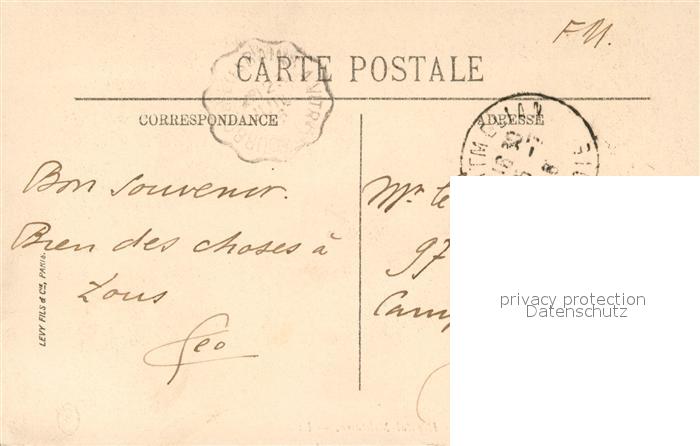 F.M.
CARTE POSTALE
CORRESPONDANCE
ADRESSE
Bon souvenir.
Bien des choses à
Tous
Geo
Mr
97
Camp
LEVY FILS & Cie, PARIS.
privacy protection
Datenschutz